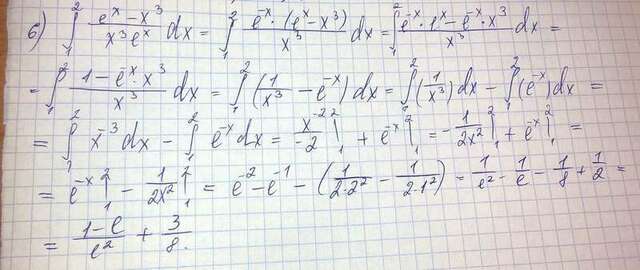 б) ∫₁² (eˣ − x³)/(x³eˣ) dx = ∫₁² (e⁻ˣ · (eˣ − x³))/x³ dx = ∫₁² (e⁻ˣ · eˣ − e⁻ˣ · x³)/x³ dx =
= ∫₁² (1 − e⁻ˣ · x³)/x³ dx = ∫₁² (1/x³ − e⁻ˣ) dx = ∫₁² (1/x³) dx − ∫₁² (e⁻ˣ) dx =
= ∫₁² x⁻³ dx − ∫₁² e⁻ˣ dx = x⁻²/−2 |₁² + e⁻ˣ |₁² = − 1/2x² |₁² + e⁻ˣ |₁² =
= e⁻ˣ |₁² − 1/2x² |₁² = e⁻² − e⁻¹ − (1/2·2² − 1/2·1²) = 1/e² − 1/e − 1/8 + 1/2 =
= (1 − e)/e² + 3/8.